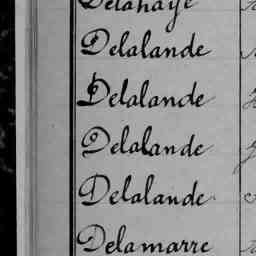 Delahaye
Delalande
Delalande
Delalande
Delalande
Delamarre